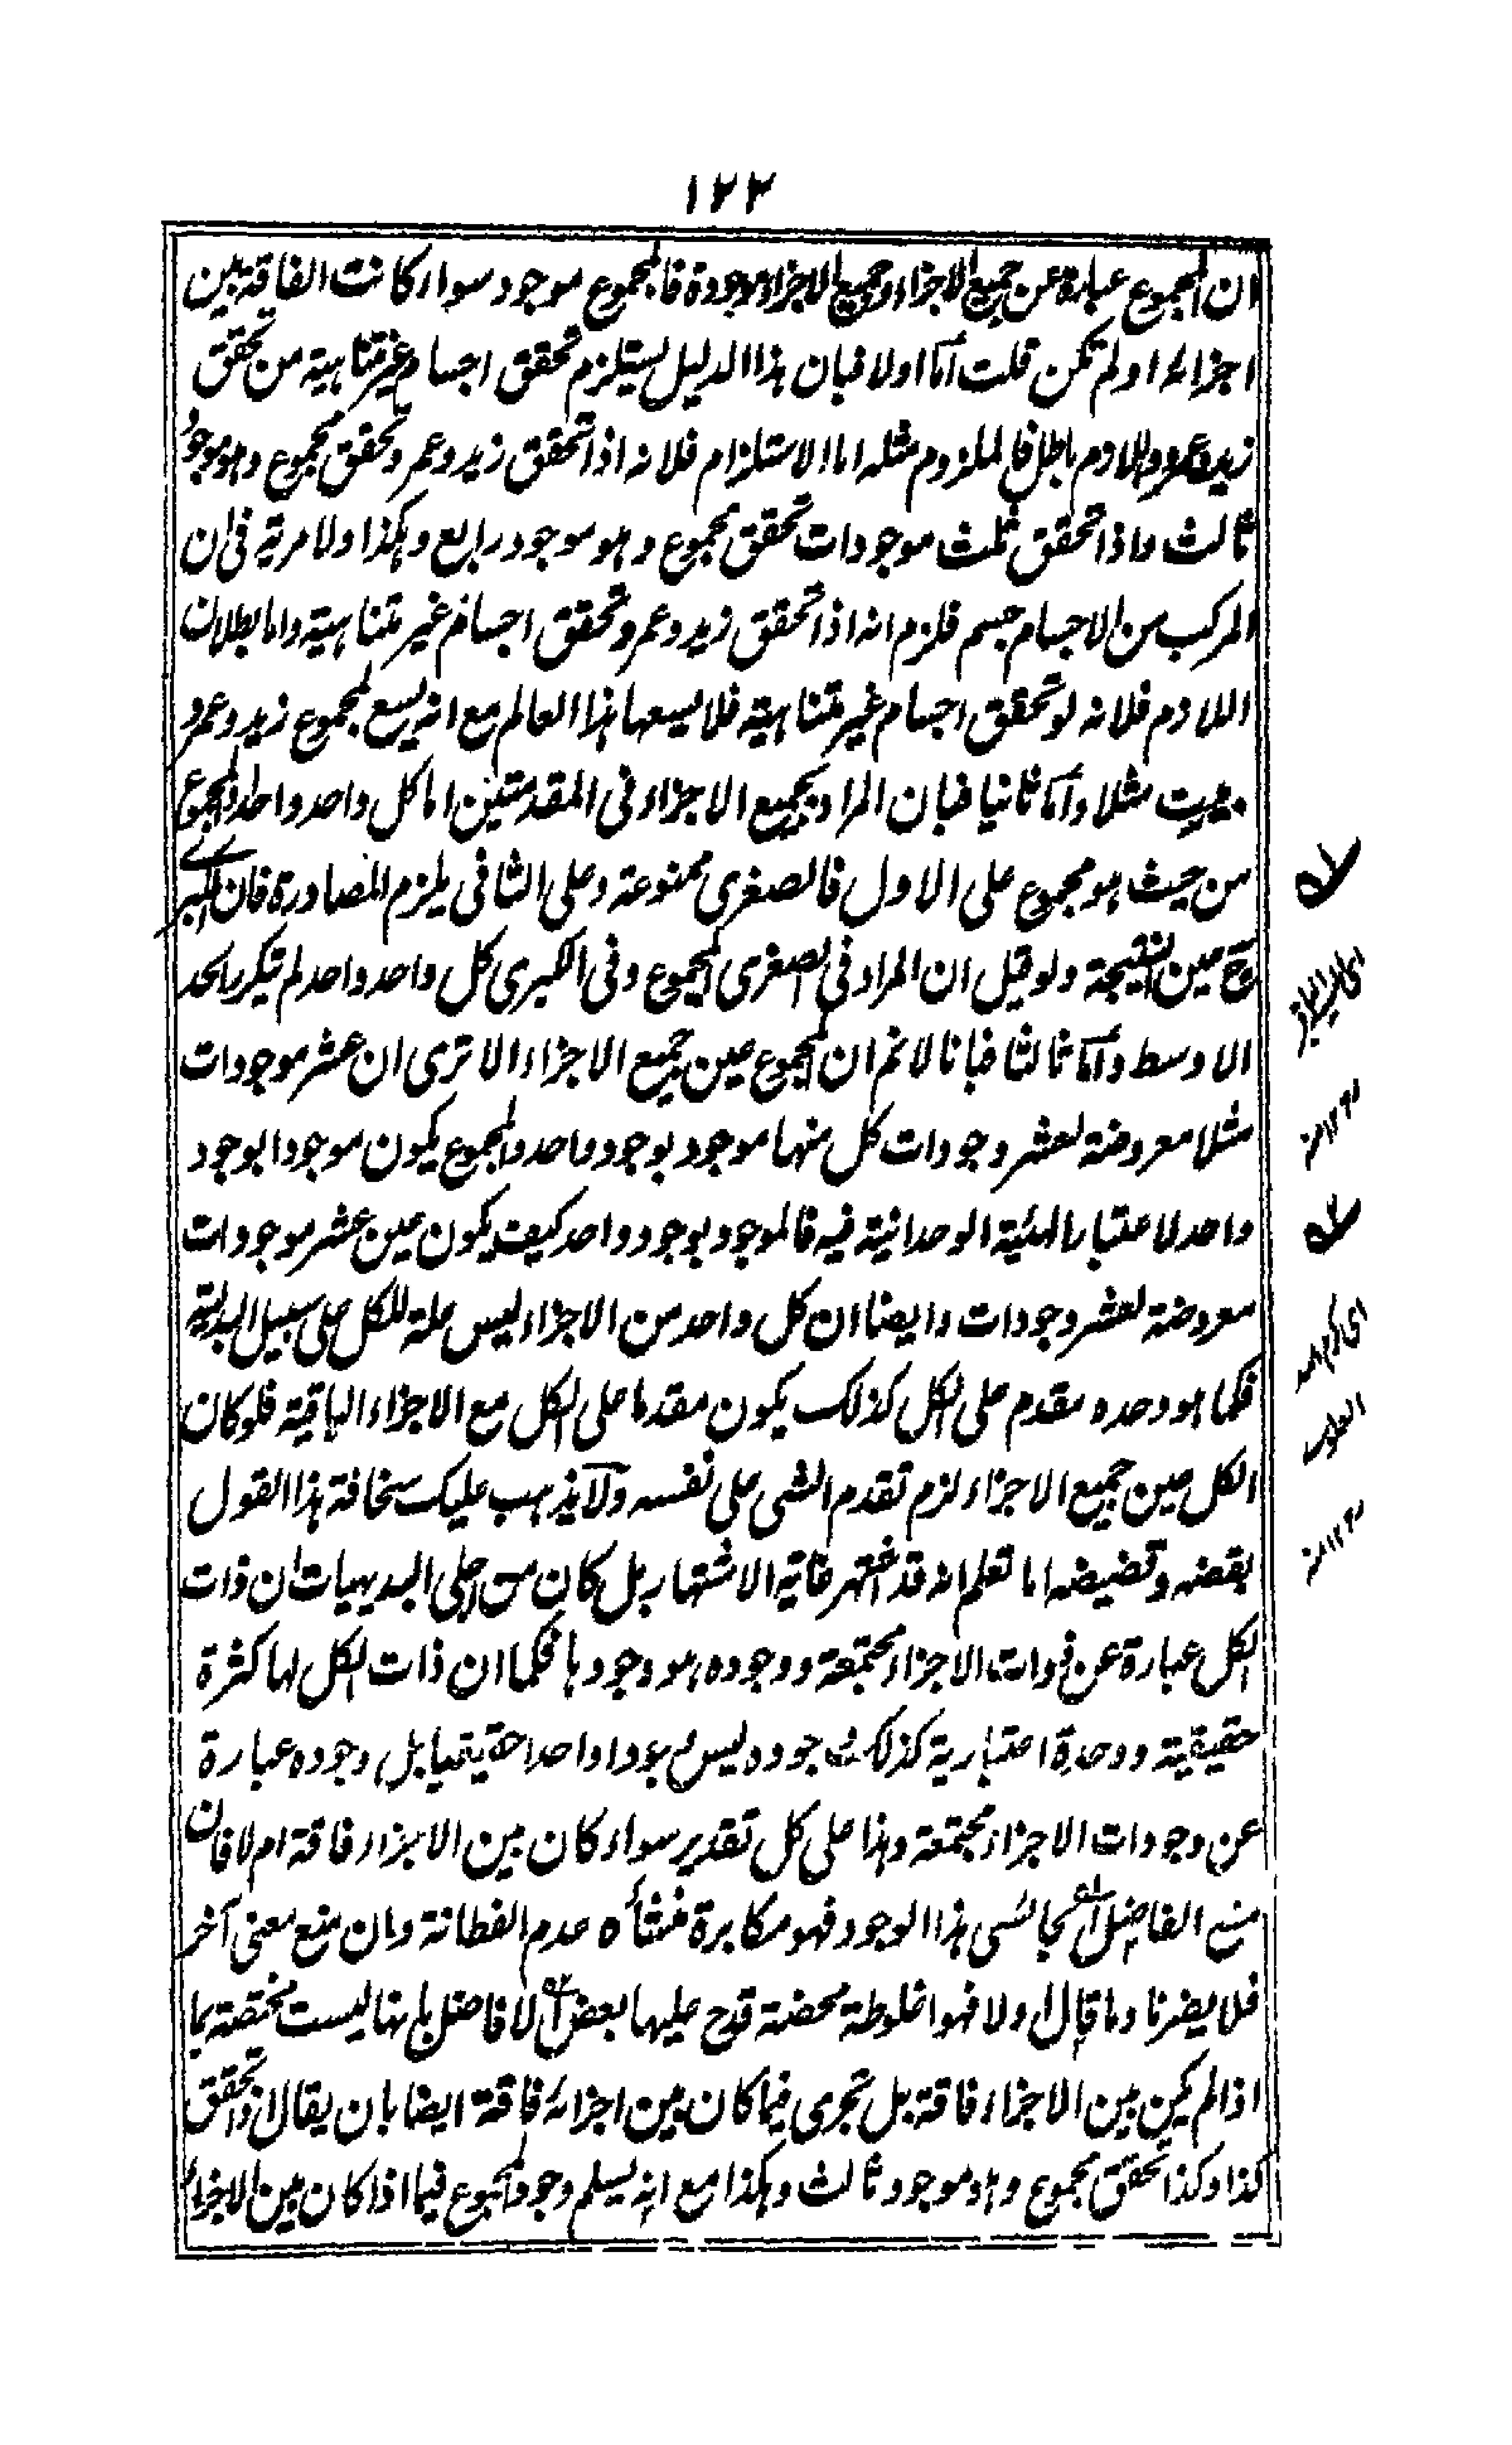 ١٢٢
ان المجموع عبارة عن جميع الاجزاء وجميع الاجزاء موجودة فالمجموع موجود سواء كانت الفاقة بين
اجزائه او لم تكن قلت أمّا اولا فبان هذا الدليل يستلزم تحقق اجسام غير متناهية من تحقق
زيد وعمرو واللازم باطل فالملزوم مثله اما الاستلزام فلانه اذا تحقق زيد وعمرو تحقق مجموع وهو موجود
ثالث واذا تحقق ثلث موجودات تحقق مجموع وهو موجود رابع وهكذا ولا مرية فى ان
المركب من الاجسام جسم فلزم انه اذا تحقق زيد وعمرو تحقق اجسام غير متناهية واما بطلان
اللازم فلانه لو تحقق اجسام غير متناهية فلا يسعها هذا العالم مع انه يسع لمجموع زيد وعمرو
بيت مثلا وأمّا ثانيا فبان المراد بجميع الاجزاء فى المقدمتين اما كل واحد واحد او المجموع
من حيث هو مجموع على الاول فالصغرى ممنوعة وعلى الثانى يلزم المصادرة فان الكبرى
ح عين النتيجة ولو قيل ان المراد فى الصغرى المجموع وفى الكبرى كل واحد واحد لم يتكرر الحد
الاوسط وأمّا ثالثا فبانا لا نم ان المجموع عين جميع الاجزاء الا ترى ان عشر موجودات
مثلا معروضة لعشر وجودات كل منها موجود بوجود واحد والمجموع يكون موجودا بوجود
واحد لاعتبار الهيئة الوحدانية فيه فالموجود بوجود واحد كيف يكون عين عشر موجودات
معروضة لعشر وجودات وايضا ان كل واحد من الاجزاء ليس علة للكل على سبيل البدلية
فكما هو وحده مقدم على الكل كذلك يكون مقدما على الكل مع الاجزاء الباقية فلو كان
الكل عين جميع الاجزاء لزم تقدم الشى على نفسه ولا يذهب عليك سخافة هذا القول
بقضه وقضيضه اما تعلم انه قد اشتهر غاية الاشتهار بل كان من اجلى البديهيات ان ذات
الكل عبارة عن ذوات الاجزاء مجتمعة ووجوده هو وجودها فكما ان ذات الكل لها كثرة
حقيقية ووحدة اعتبارية كذلك وجوده ليس وجودا واحدا حقيقيا بل وجوده عبارة
عن وجودات الاجزاء مجتمعة وهذا على كل تقدير سواء كان بين الاجزاء فاقة ام لا فان
منع الفاضل هذا الوجود فهو مكابرة منشأه عدم الفطانة وان منع معنى آخر
فلا يضرنا وما قال اولا فهو اغلوطة محضة قدح عليها بعض الافاضل بانها ليست مختصة بما
اذا لم يكن بين الاجزاء فاقة بل تجرى فيما كان بين اجزائه فاقة ايضا بان يقال اذا تحقق
كذا وكذا تحقق مجموع وهو موجود ثالث وهكذا مع انه يسلم وجود المجموع فيما اذا كان بين الاجزاء